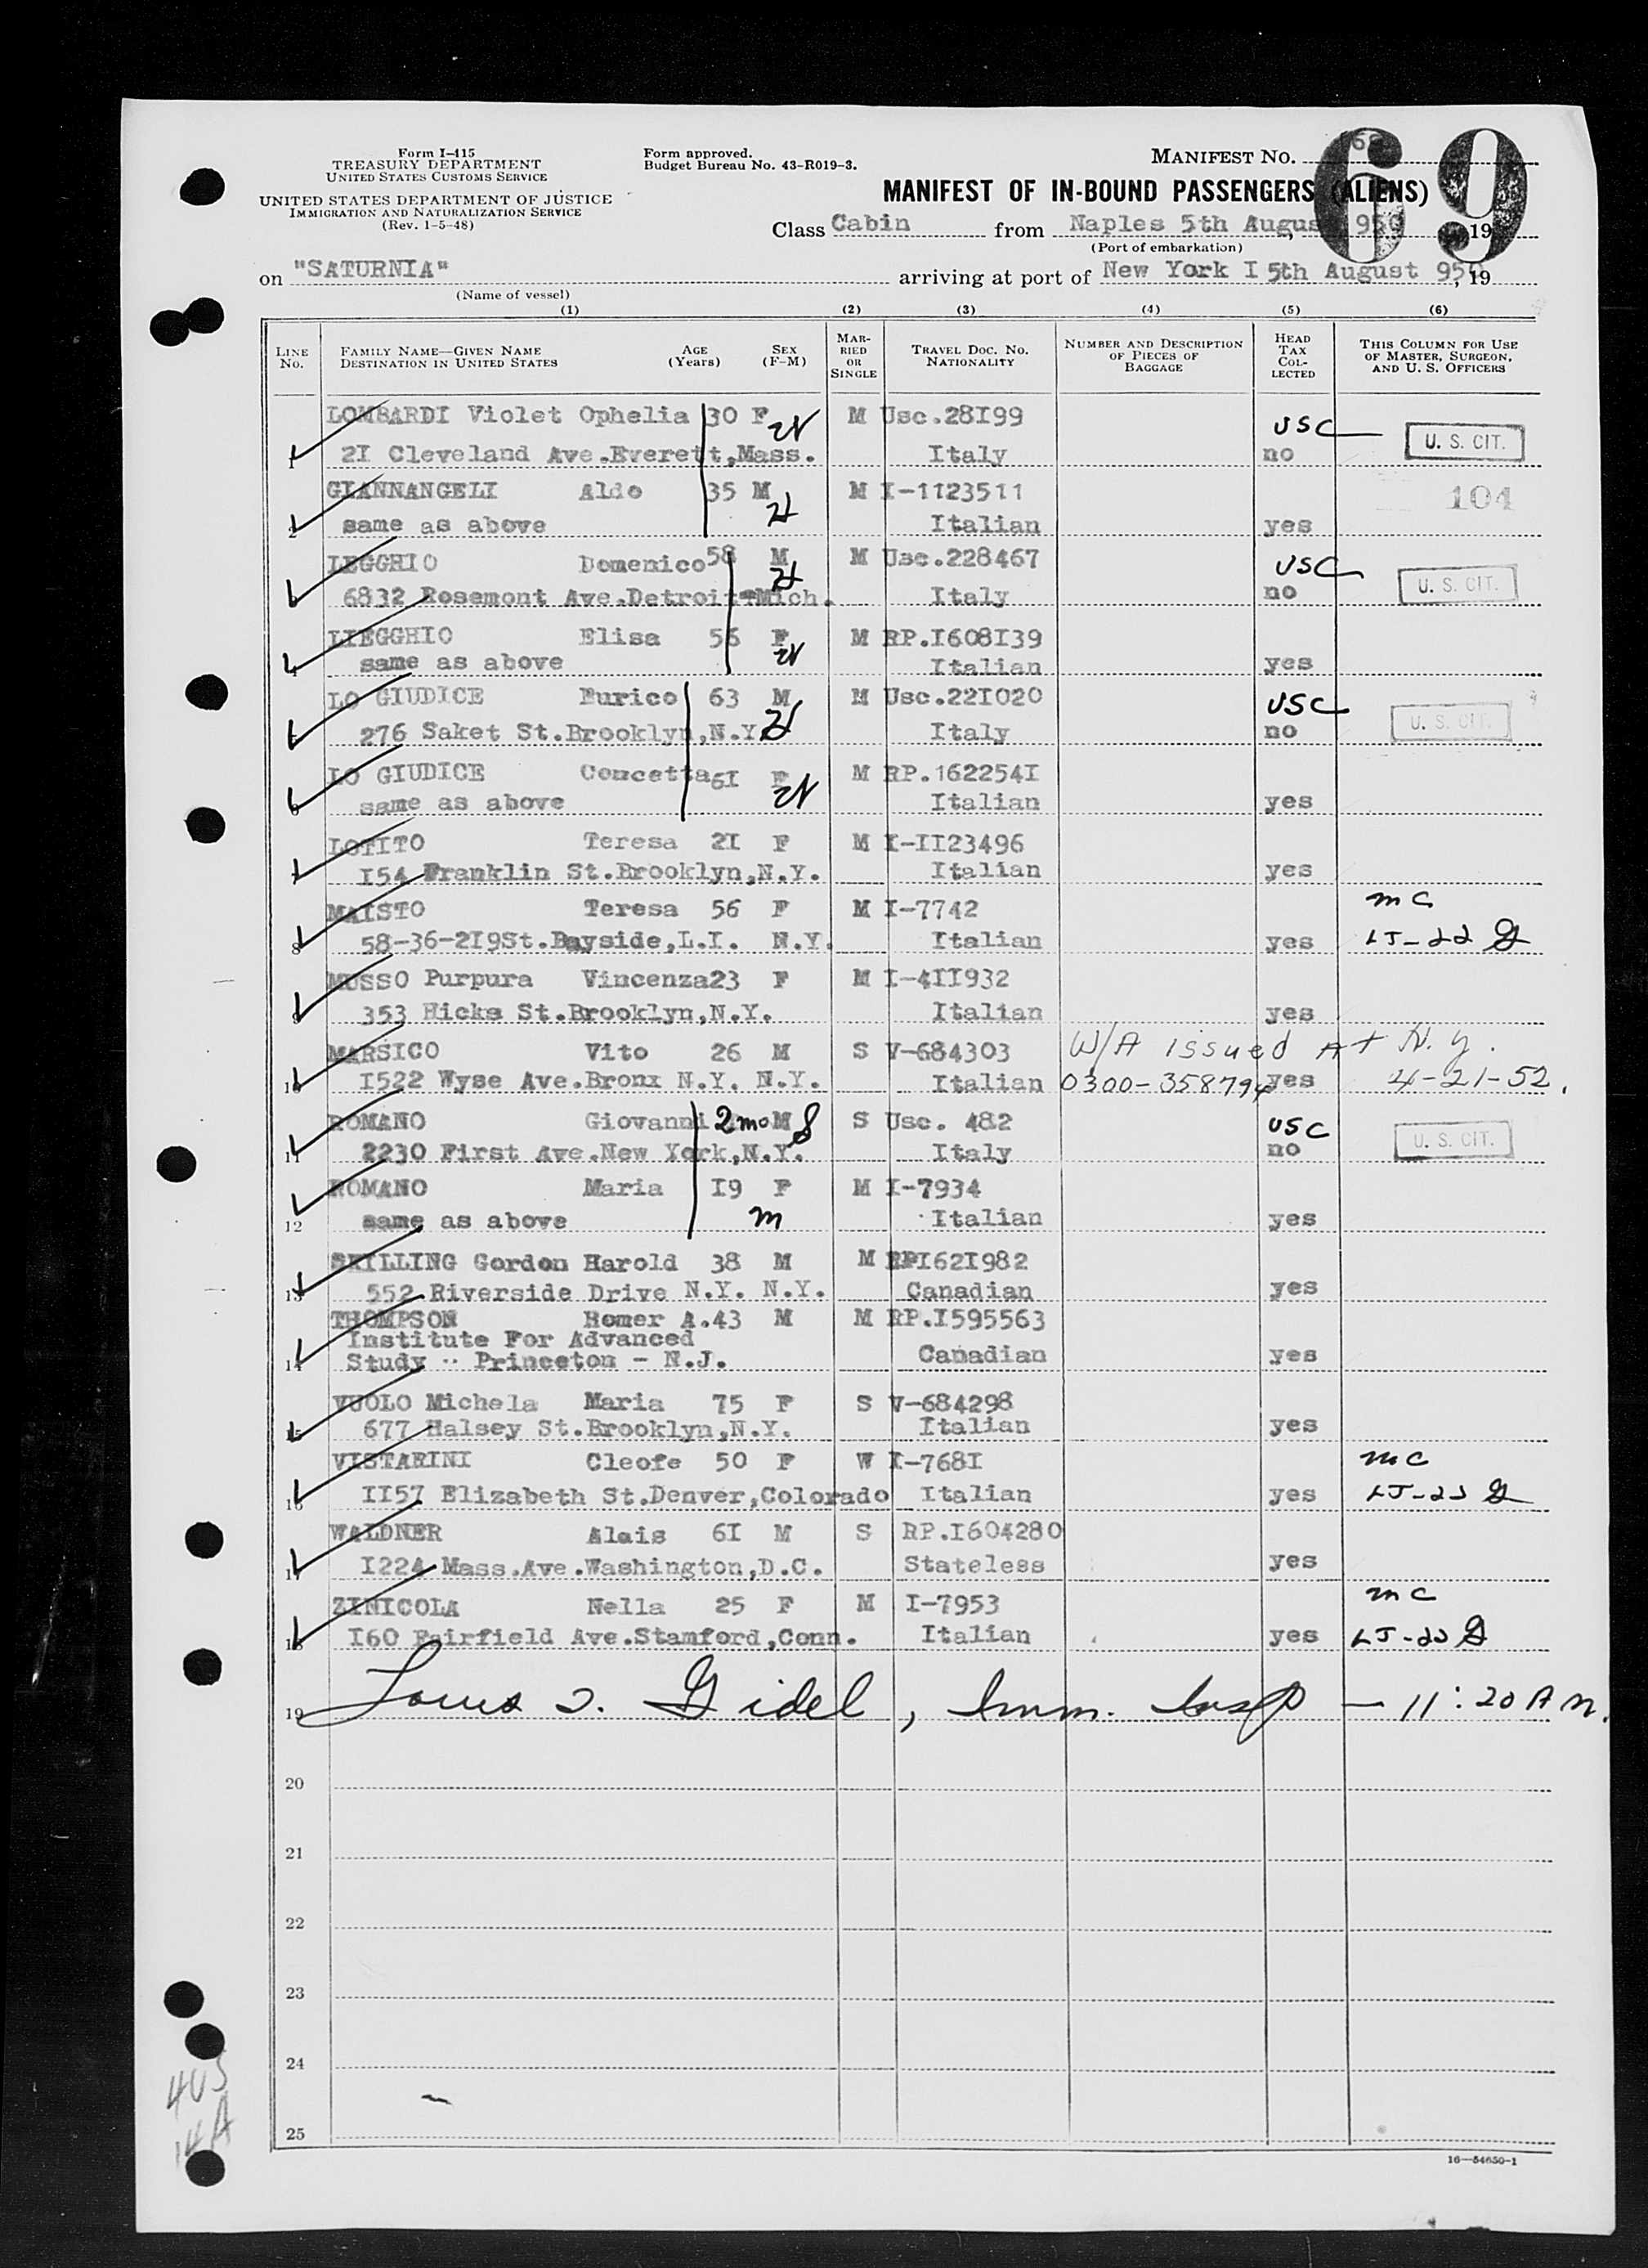 Form I-415
TREASURY DEPARTMENT
UNITED STATES CUSTOMS SERVICE
UNITED STATES DEPARTMENT OF JUSTICE
IMMIGRATION AND NATURALIZATION SERVICE
(Rev. 1-5-48)
Form approved.
Budget Bureau No. 43-R019-3.
MANIFEST NO.
69
MANIFEST OF IN-BOUND PASSENGERS (ALIENS)
Class Cabin from Naples 5th August 950 19
(Port of embarkation)
on "SATURNIA" arriving at port of New York I5th August 950, 19
(Name of vessel)
(1) (2) (3) (4) (5) (6)
LINE NO. FAMILY NAME—GIVEN NAME DESTINATION IN UNITED STATES AGE (Years) SEX (F-M) MARRIED OR SINGLE TRAVEL DOC. NO. NATIONALITY NUMBER AND DESCRIPTION OF PIECES OF BAGGAGE HEAD TAX COLLECTED THIS COLUMN FOR USE OF MASTER, SURGEON, AND U. S. OFFICERS
LOMBARDI Violet Ophelia 30 F W M Usc.28I99 USC U. S. CIT.
1 2I Cleveland Ave.Everett,Mass. Italy no
GIANNANGELI Aldo 35 M H M I-1123511 104
2 same as above Italian yes
LEGGHIO Domenico 58 M H M Usc.228467 USC U. S. CIT.
6832 Rosemont Ave.Detroit-Mich. Italy no
LIEGGHIO Elisa 56 F W M RP.I608I39
4 same as above Italian yes
LO GIUDICE Eurico 63 M H M Usc.22I020 USC U. S. CIT.
276 Saket St.Brooklyn,N.Y. Italy no
LO GIUDICE Concetta 6I F W M RP.162254I
6 same as above Italian yes
LOTITO Teresa 2I F M I-II23496
7 I54 Franklin St.Brooklyn,N.Y. Italian yes
MAISTO Teresa 56 F M I-7742 mc
8 58-36-2I9St.Bayside,L.I. N.Y. Italian yes
MUSSO Purpura Vincenza 23 F M I-4II932
9 353 Hicks St.Brooklyn,N.Y. Italian yes
MARSICO Vito 26 M S V-684303 W/A issued At N.Y.
10 I522 Wyse Ave.Bronx N.Y. N.Y. Italian 0300-358794 yes 4-21-52.
ROMANO Giovanni 2mo M S Usc. 482 USC U. S. CIT.
11 2230 First Ave.New York,N.Y. Italy no
ROMANO Maria I9 F M I-7934
12 same as above m Italian yes
SKILLING Gordon Harold 38 M M RPI62I982
13 552 Riverside Drive N.Y. N.Y. Canadian yes
THOMPSON Homer A. 43 M M RP.I595563
Institute For Advanced
14 Study - Princeton - N.J. Canadian yes
VUOLO Michela Maria 75 F S V-684298
15 677 Halsey St.Brooklyn,N.Y. Italian yes
VISTARINI Cleofe 50 F W I-768I mc
16 II57 Elizabeth St.Denver,Colorado Italian yes
WALDNER Alais 6I M S RP.I604280
17 I224 Mass.Ave.Washington,D.C. Stateless yes
ZINICOLA Nella 25 F M I-7953 mc
18 I60 Fairfield Ave.Stamford,Conn. Italian yes
19 Gidel, Imm. Insp — 11:20 A M.
20
21
22
23
24
25
16—54650-1